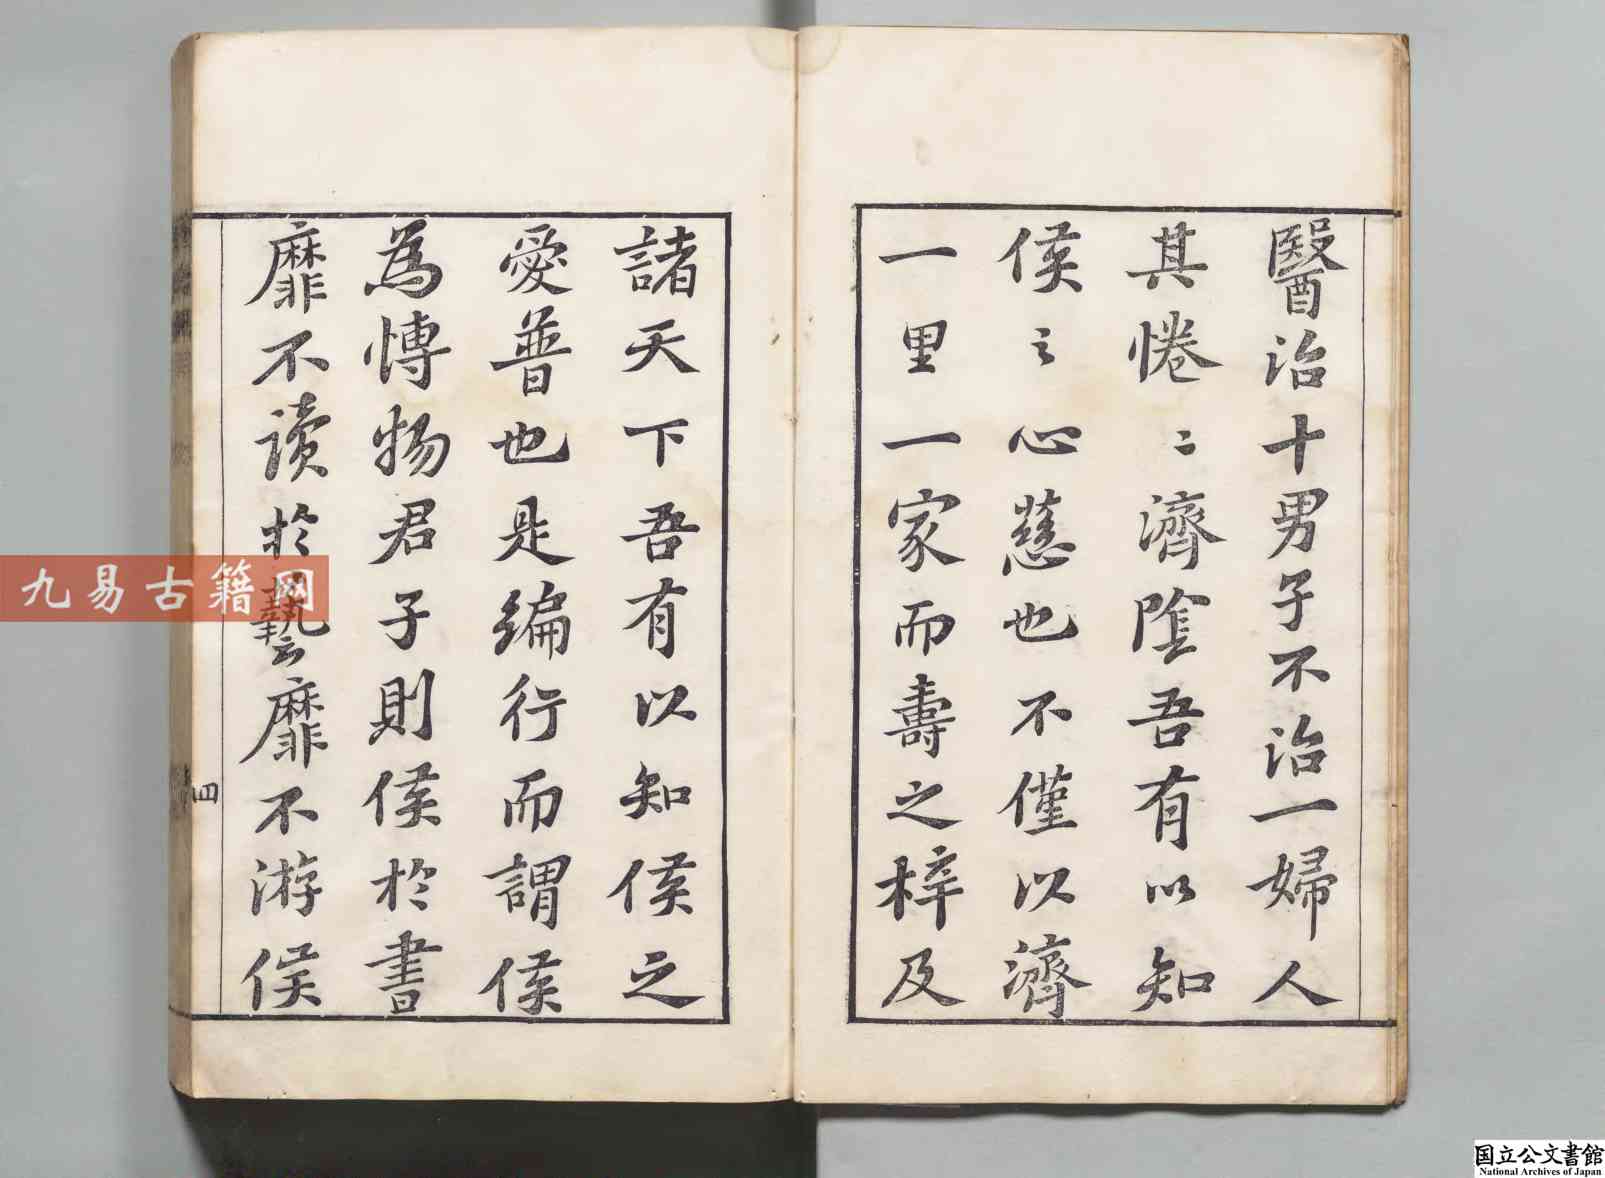 醫治十男子不治一婦人
其惓〻濟陰吾有以知
侯之心慈也不僅以濟
一里一家而壽之梓及
諸天下吾有以知侯之
愛普也是編行而謂侯
為博物君子則侯於書
靡不讀於藝靡不游侯
四
九易古籍网
国立公文書館
National Archives of Japan